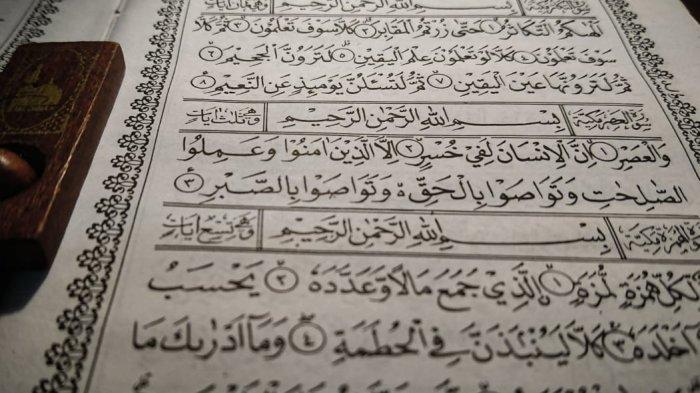 بِسْمِ اللهِ الرَّحْمٰنِ الرَّحِيْمِ
اَلْهٰىكُمُ التَّكَاثُرُۙ ١ حَتّٰى زُرْتُمُ الْمَقَابِرَۗ ٢ كَلَّا سَوْفَ تَعْلَمُوْنَۙ ٣ ثُمَّ كَلَّا
سَوْفَ تَعْلَمُوْنَۗ ٤ كَلَّا لَوْ تَعْلَمُوْنَ عِلْمَ الْيَقِيْنِۗ ٥ لَتَرَوُنَّ الْجَحِيْمَۙ ٦
ثُمَّ لَتَرَوُنَّهَا عَيْنَ الْيَقِيْنِۙ ٧ ثُمَّ لَتُسْـَٔلُنَّ يَوْمَىِٕذٍ عَنِ النَّعِيْمِ ٨
سورة العصر مكية بِسْمِ اللهِ الرَّحْمٰنِ الرَّحِيْمِ وهى ثلث ايات
وَالْعَصْرِۙ ١ اِنَّ الْاِنْسَانَ لَفِيْ خُسْرٍۙ ٢ اِلَّا الَّذِيْنَ اٰمَنُوْا وَعَمِلُوا
الصّٰلِحٰتِ وَتَوَاصَوْا بِالْحَقِّ ەۙ وَتَوَاصَوْا بِالصَّبْرِ ٣
الهمزة مكية بِسْمِ اللهِ الرَّحْمٰنِ الرَّحِيْمِ وهى تسع ايات
لِّكُلِّ هُمَزَةٍ لُّمَزَةٍۙ ١ ۨالَّذِيْ جَمَعَ مَالًا وَّعَدَّدَهٗۙ ٢ يَحْسَبُ
اَخْلَدَهٗۚ ٣ كَلَّا لَيُنْۢبَذَنَّ فِى الْحُطَمَةِۖ ٤ وَمَآ اَدْرٰىكَ مَا